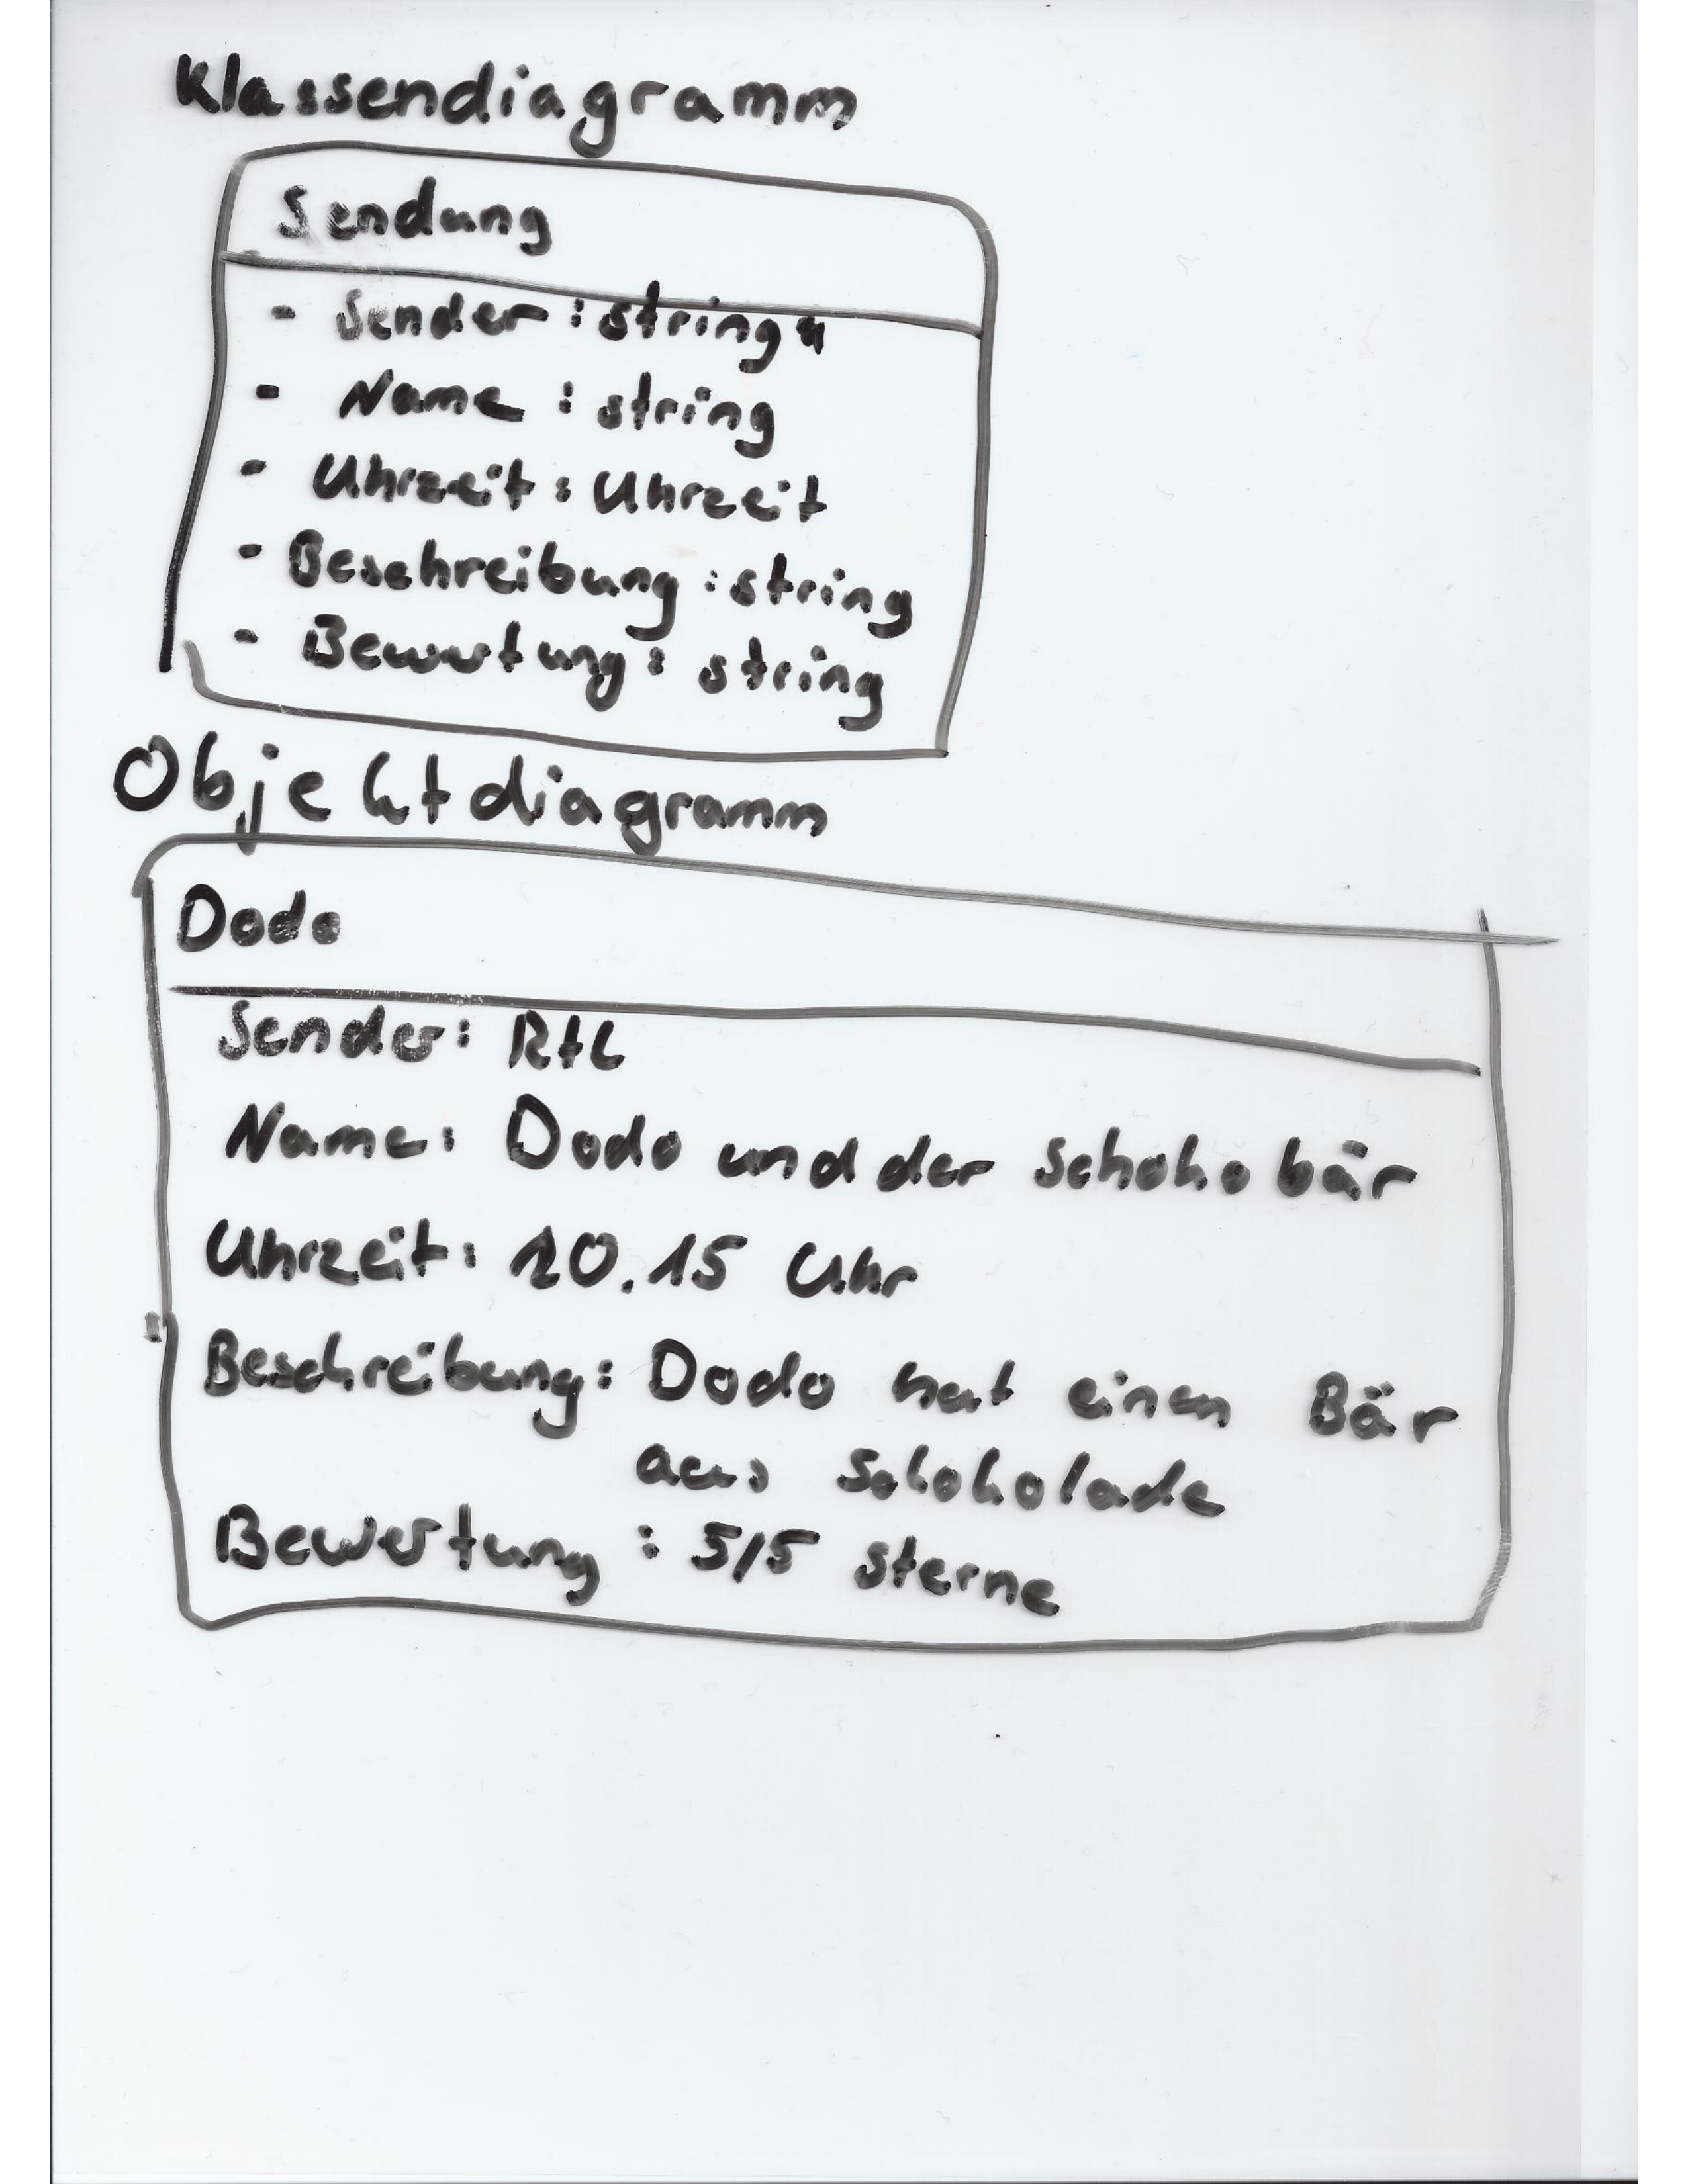 Klassendiagramm
Sendung
- Sender : string
- Name : string
- Uhrzeit : Uhrzeit
- Beschreibung : string
- Bewertung : string
Objektdiagramm
Dodo
Sender: RtL
Name: Dodo und der Schokobär
Uhrzeit: 20.15 Uhr
Beschreibung: Dodo hat einen Bär
aus Schokolade
Bewertung : 5/5 Sterne